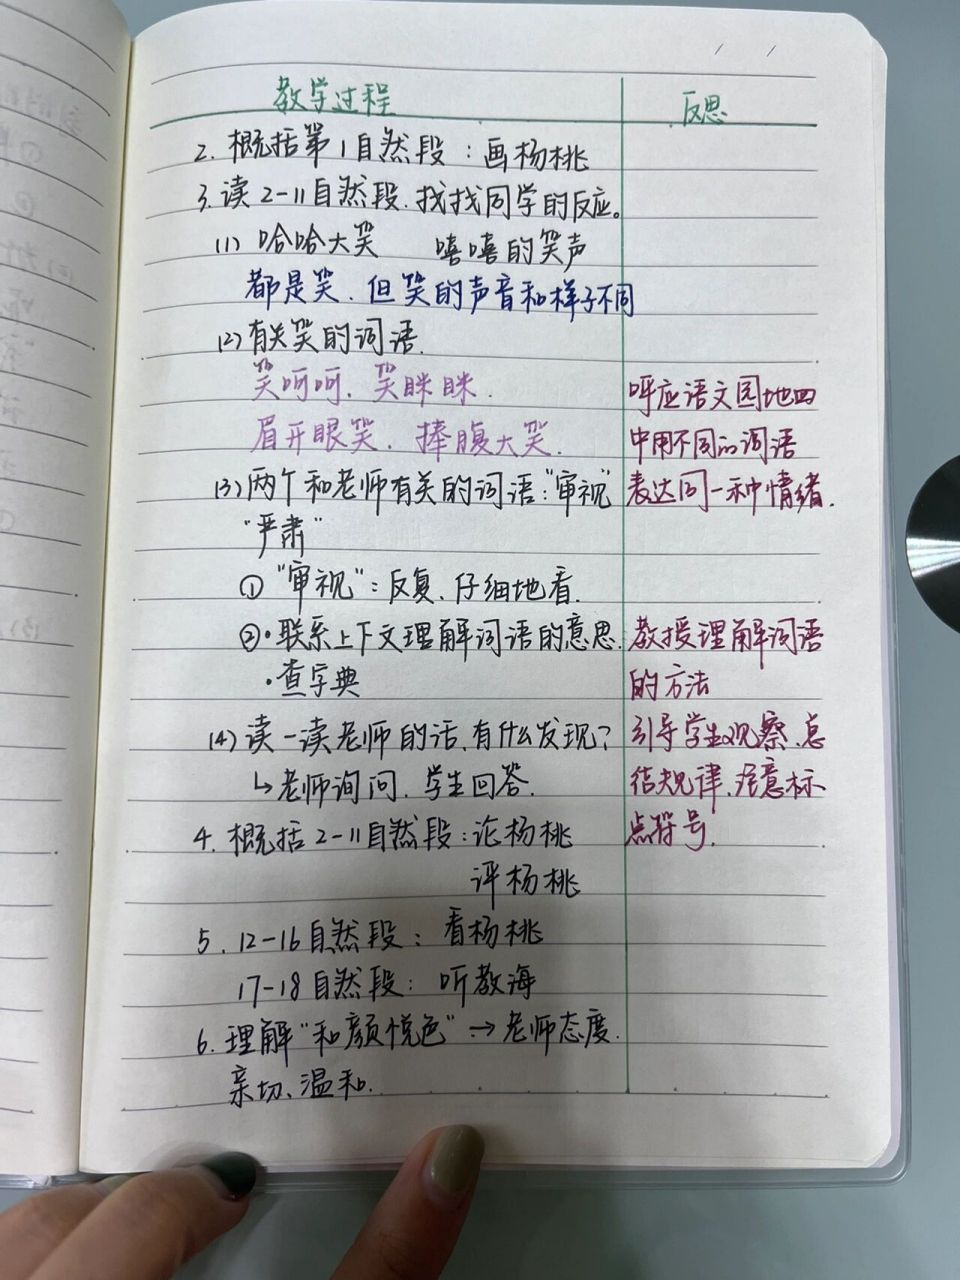 教学过程
反思
2. 概括第1自然段：画杨桃
3. 读2-11自然段、找找同学的反应。
(1) 哈哈大笑 嘻嘻的笑声
都是笑、但笑的声音和样子不同
(2) 有关笑的词语.
笑呵呵、笑眯眯.
眉开眼笑、捧腹大笑.
呼应语文园地四
中用不同的词语
表达同一种情绪.
(3) 两个和老师有关的词语:"审视"
"严肃"
① "审视"：反复、仔细地看.
②·联系上下文理解词语的意思.
·查字典
教授理解词语
的方法
(4) 读一读老师的话、有什么发现?
↳老师询问、学生回答.
引导学生观察、总
结规律、注意标
点符号.
4. 概括2-11自然段：论杨桃
评杨桃
5. 12-16自然段：看杨桃
17-18自然段：听教海
6. 理解"和颜悦色"→老师态度.
亲切、温和.